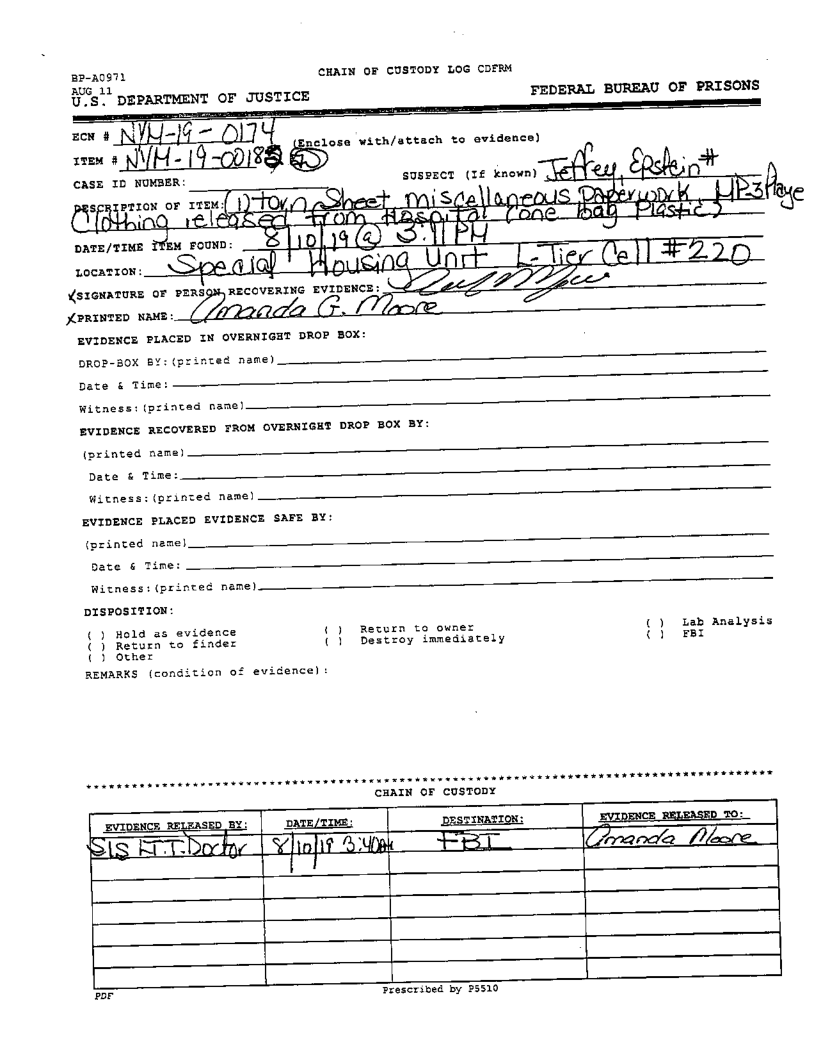 CHAIN OF CUSTODY LOG CDFRM
BP-A0971
AUG 11
U.S. DEPARTMENT OF JUSTICE FEDERAL BUREAU OF PRISONS
ECN # NYM-19-0174 (Enclose with/attach to evidence)
ITEM # NYM-19-0018
CASE ID NUMBER: SUSPECT (If known) Jeffrey Epstein #
DESCRIPTION OF ITEM: (1) torn Sheet miscellaneous paperwork, MP-3 Playe
Clothing released from Hospital (one bag Plastic)
DATE/TIME ITEM FOUND: 8/10/19 @ 3:11 PM
LOCATION: Special Housing Unit L-Tier Cell #220
X SIGNATURE OF PERSON RECOVERING EVIDENCE:
X PRINTED NAME: Amanda G. Moore
EVIDENCE PLACED IN OVERNIGHT DROP BOX:
DROP-BOX BY:(printed name)
Date & Time:
Witness:(printed name)
EVIDENCE RECOVERED FROM OVERNIGHT DROP BOX BY:
(printed name)
Date & Time:
Witness:(printed name)
EVIDENCE PLACED EVIDENCE SAFE BY:
(printed name)
Date & Time:
Witness:(printed name)
DISPOSITION:
( ) Hold as evidence ( ) Return to owner ( ) Lab Analysis
( ) Return to finder ( ) Destroy immediately ( ) FBI
( ) Other
REMARKS (condition of evidence):
CHAIN OF CUSTODY
EVIDENCE RELEASED BY: DATE/TIME: DESTINATION: EVIDENCE RELEASED TO:
SIS Doctor 8/10/19 3:40 FBI Amanda Moore
PDF Prescribed by P5510